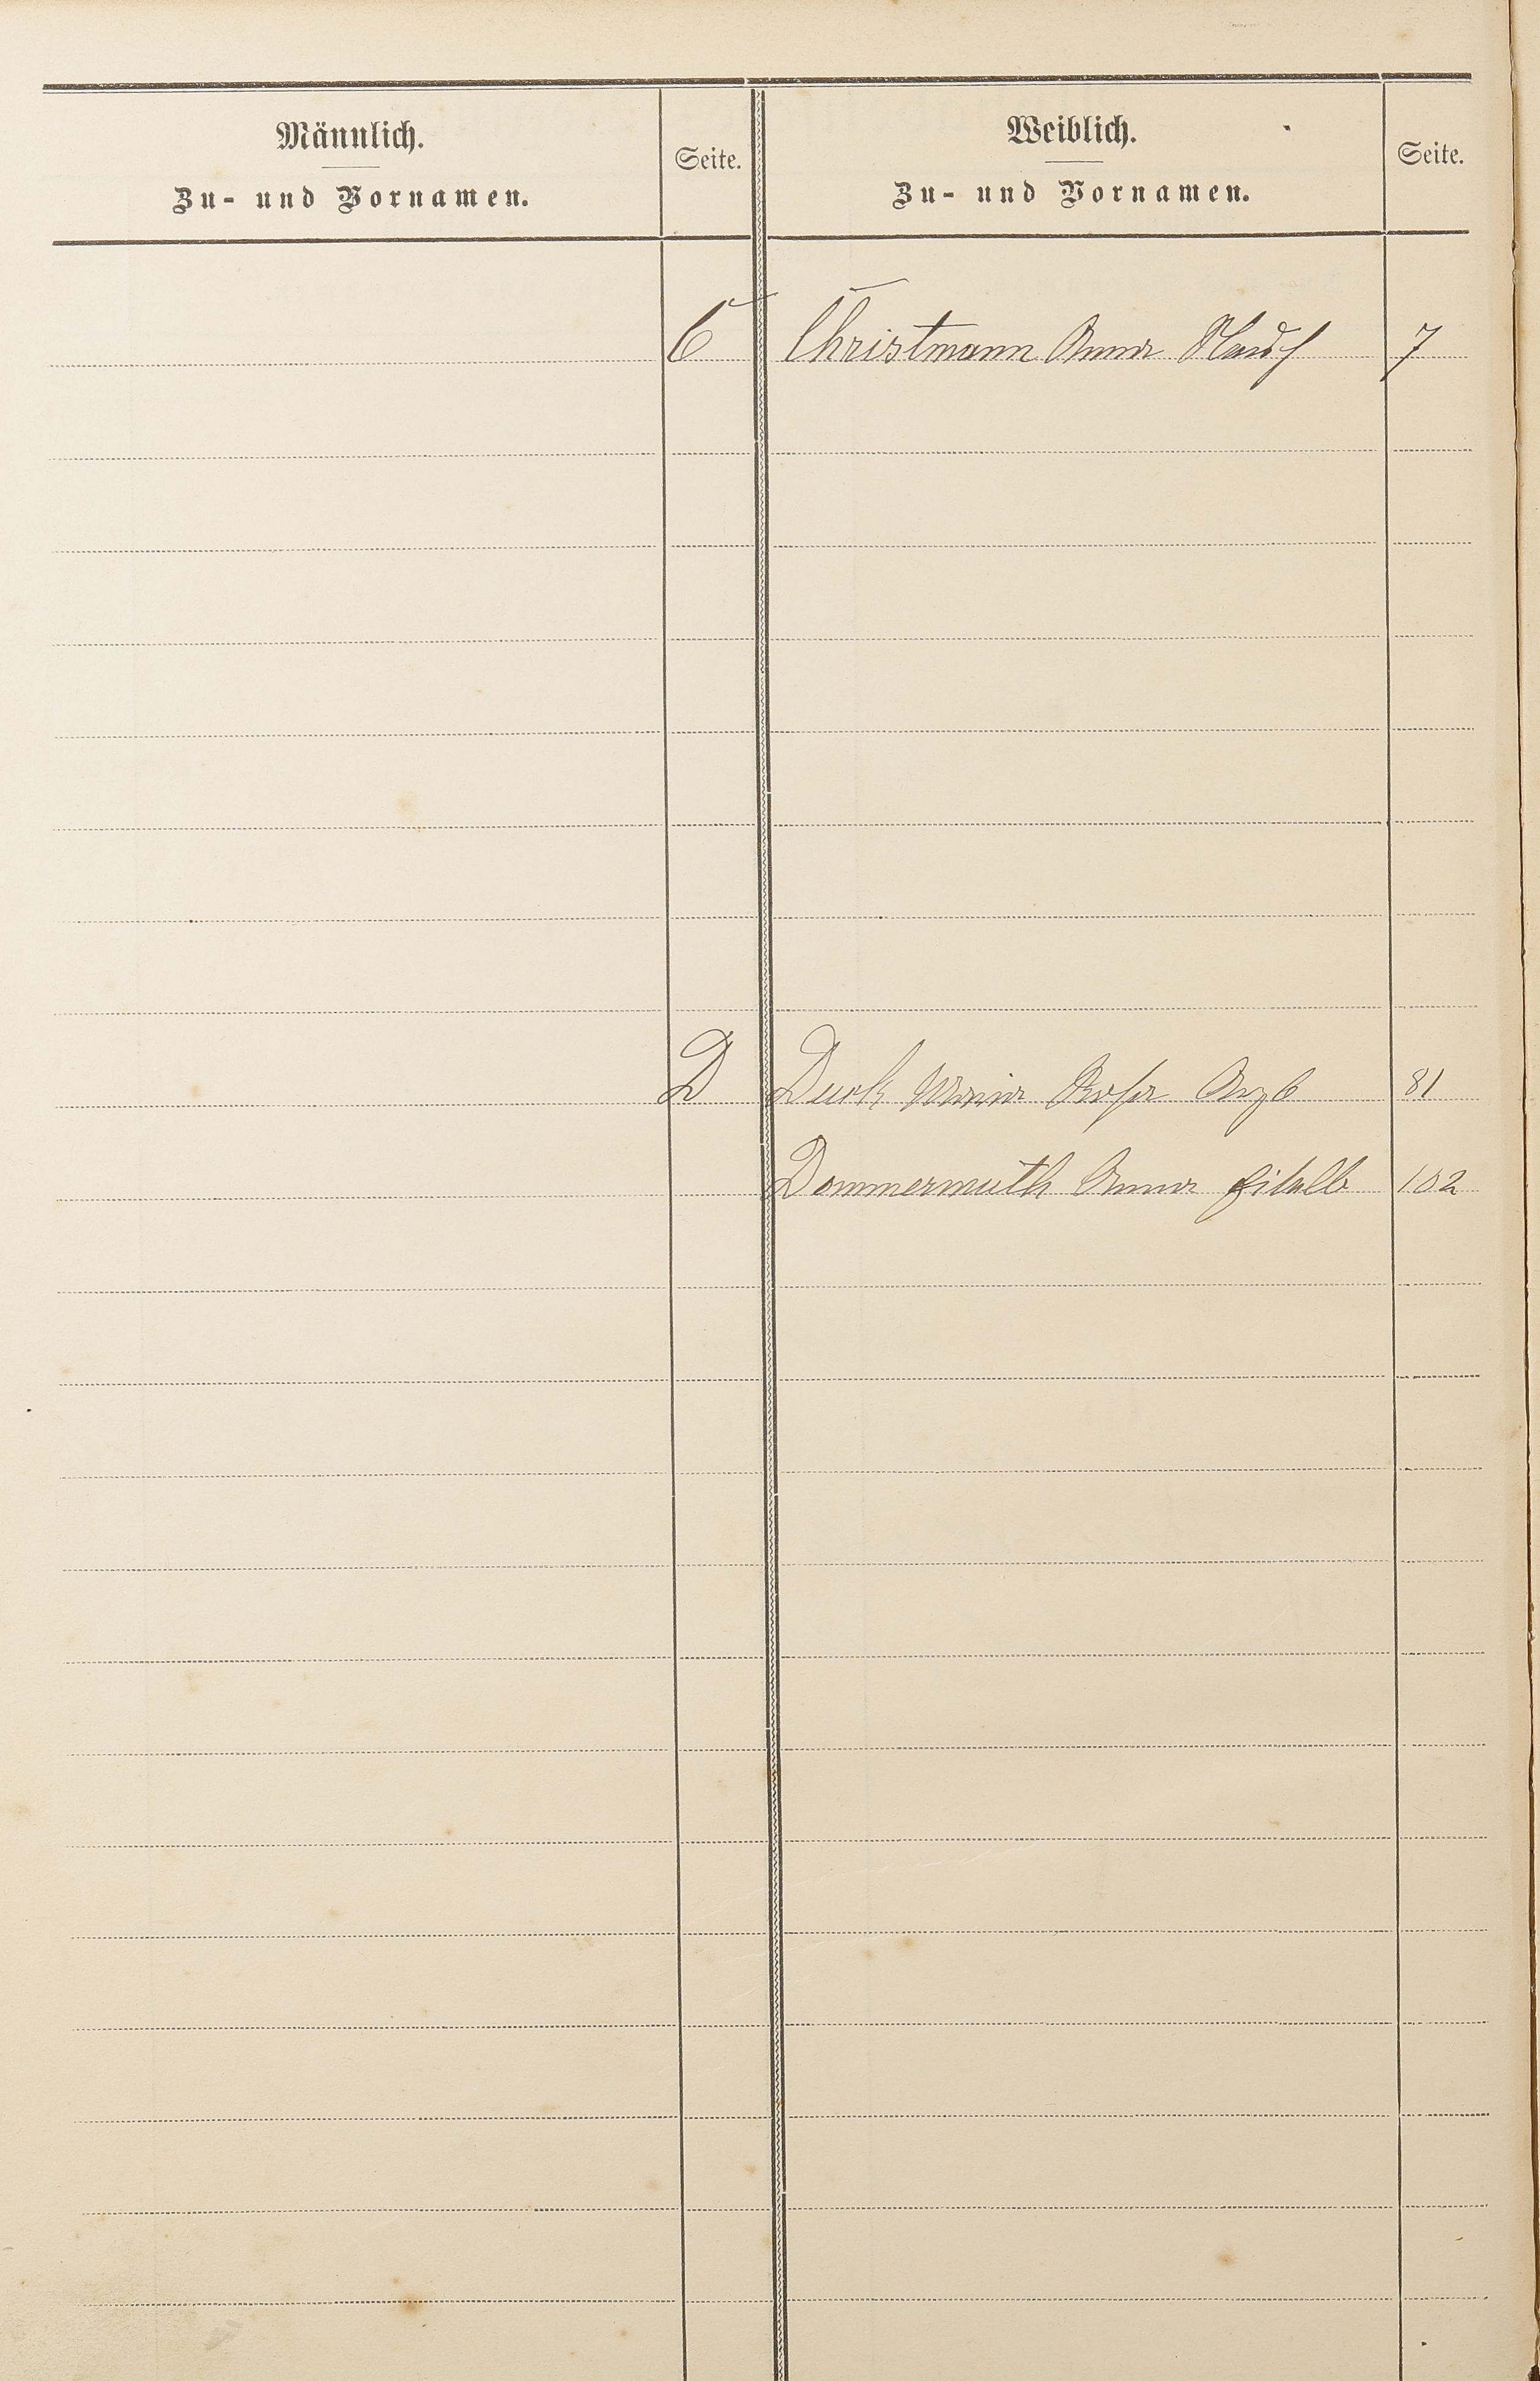 Männlich.
Zu- und Vornamen.
Seite.
Weiblich.
Zu- und Vornamen.
Seite.
C Christmann Anna 7
D Duck Maria Rosa 81
Dommermuth Anna 102